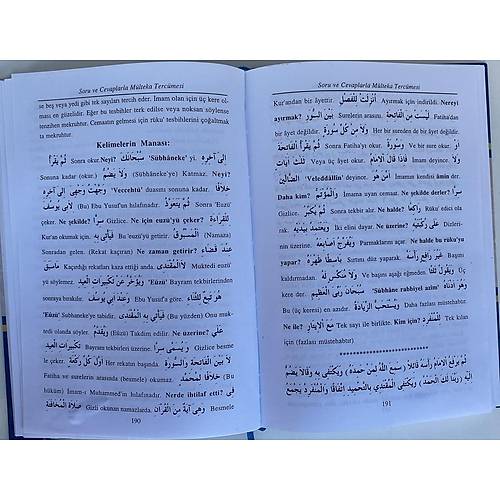 Soru ve Cevaplarla Mülteka Tercümesi
se beş veya yedi gibi tek sayıları tercih eder. İmam olan için üç kere ol-
ması en güzelidir. Eğer bu tesbihler terk edilse veya noksan söylense
tenzihen mekruhtur. Cemaatın gelmesi için rükû' tesbihlerini çoğaltmak
ta mekruhtur.
Kelimelerin Manası:
ثُمَّ يَقْرَأُ Sonra okur. Neyi? سُبْحَانَكَ 'Sübhâneke'yi. إِلَى آخِرِهِ
Sonuna kadar (okur). وَلَا يَضُمُّ (Sübhâneke'ye) Katmaz. Neyi?
وَجَّهْتُ وَجْهِيَ إِلَى آخِرِهِ 'Veccehtü' duasını sonuna kadar. خِلَافًا
لِأَبِي يُوسُفَ (Bu) Ebu Yusuf'un hılafınadır. ثُمَّ يَتَعَوَّذُ Sonra 'Euzü'
çeker. Ne şekilde? سِرًّا Gizlice. Ne için euzü'yü çeker? لِلْقِرَاءَةِ
Kur'an okumak için. فَيَأْتِي بِهِ Bu 'euzü'yü getirir. الْمَسْبُوقُ (Namaza)
Sonradan gelen. (Rekat açığını) Ne zaman getirir? عِنْدَ قَضَاءِ
مَا سَبَقَ Kaçırdığı rekatları kaza ettiği anda. لَا الْمُقْتَدِي Muktedi euzü'
yü söylemez. وَيُؤَخِّرُ عَنْ تَكْبِيرَاتِ الْعِيدِ 'Euzü' Bayram tekbirlerinden
sonraya bırakılır. وَعِنْدَ أَبِي يُوسُفَ Ebu Yusuf'a göre. هُوَ تَبَعٌ لِلثَّنَاءِ
'Eûzü' Sübhaneke'ye tabidir. فَيَأْتِي بِهِ الْمُقْتَدِي (Bu yüzden) Onu muk-
tedi olanda söyler. وَيُقَدِّمُ (Eûzü) Takdim edilir. Ne üzerine? عَلَى
تَكْبِيرَاتِ الْعِيدِ Bayram tekbirleri üzerine. وَيُسَمِّي سِرًّا Gizlice besme
le çeker. أَوَّلَ كُلِّ رَكْعَةٍ Her rekatın başında. لَا بَيْنَ الْفَاتِحَةِ وَالسُّورَةِ
Fatiha ve surelerin arasında (besmele) okumaz. خِلَافًا لِمُحَمَّدٍ (Bu
hüküm) İmam-ı Muhammed'in hılafınadır. Nerde ihtilaf etti? فِي
صَلَاةِ الْمُخَافَتَةِ Gizli okunan namazlarda. وَهِيَ آيَةٌ مِنَ الْقُرْآنِ Besmele
190
Soru ve Cevaplarla Mülteka Tercümesi
Kur'andan bir âyettir. أُنْزِلَتْ لِلْفَصْلِ Ayırmak için indirildi. Nereyi
ayırmak? بَيْنَ السُّوَرِ Surelerin arasını. لَيْسَتْ مِنَ الْفَاتِحَةِ Fatiha'dan
bir âyet değildir. وَلَا مِنْ كُلِّ سُورَةٍ Her bir sureden de bir âyet değildir.
ثُمَّ يَقْرَأُ الْفَاتِحَةَ Sonra Fatiha'yı okur. وَسُورَةً Ve bir sure okur. أَوْ
ثَلَثَ آيَاتٍ Veya üç âyet okur. فَإِذَا قَالَ الْإِمَامُ İmam deyince. وَلَا
الضَّالِّينَ 'Veleddâllîn' deyince. أَمَّنَ هُوَ İmamın kendisi âmin der.
Daha kim? وَالْمُؤْتَمُّ İmama uyan. Ne şekilde derler? سِرًّا
Gizlice. ثُمَّ يُكَبِّرُ Sonra tekbir alır. رَاكِعًا Ne halde? Rükû' edici ola
rak. وَيَعْتَمِدُ بِيَدَيْهِ İki elini dayar. Ne üzerine? عَلَى رُكْبَتَيْهِ Dizleri-
nin üzerine. وَيُفَرِّجُ أَصَابِعَهُ Parmaklarını açar. Ne halde bu rükû'yu
yapar? بَاسِطًا ظَهْرَهُ Sırtını düz yaparak. غَيْرَ رَافِعٍ رَأْسَهُ Başını
kaldırmadan. وَلَا مُنَكِّسٍ لَهُ Ve başını aşağı eğmeden. وَيَقُولُ ثَلَثًا Üç
kere der. سُبْحَانَ رَبِّيَ الْعَظِيمِ 'Sübhâne rabbiyel azim' وَهُوَ أَدْنَاهُ
Bu (üç kere) en azıdır. وَيُسْتَحَبُّ الزِّيَادَةُ Daha fazlası müstehabtır.
Ne ile? مَعَ الْإِيتَارِ Tek sayı ile birlikte. Kim için? لِلْمُنْفَرِدِ Tek kılan
için (fazlası müstehabtır)
********************
ثُمَّ يَرْفَعُ الْإِمَامُ رَأْسَهُ قَائِلًا (سَمِعَ اللَّهُ لِمَنْ حَمِدَهُ) وَيَكْتَفِي بِهِ وَقَالَا يَضُمُّ
إِلَيْهِ (رَبَّنَا لَكَ الْحَمْدُ) وَيَكْتَفِي الْمُقْتَدِي بِالتَّحْمِيدِ اتِّفَاقًا وَالْمُنْفَرِدُ يَجْمَعُ
191